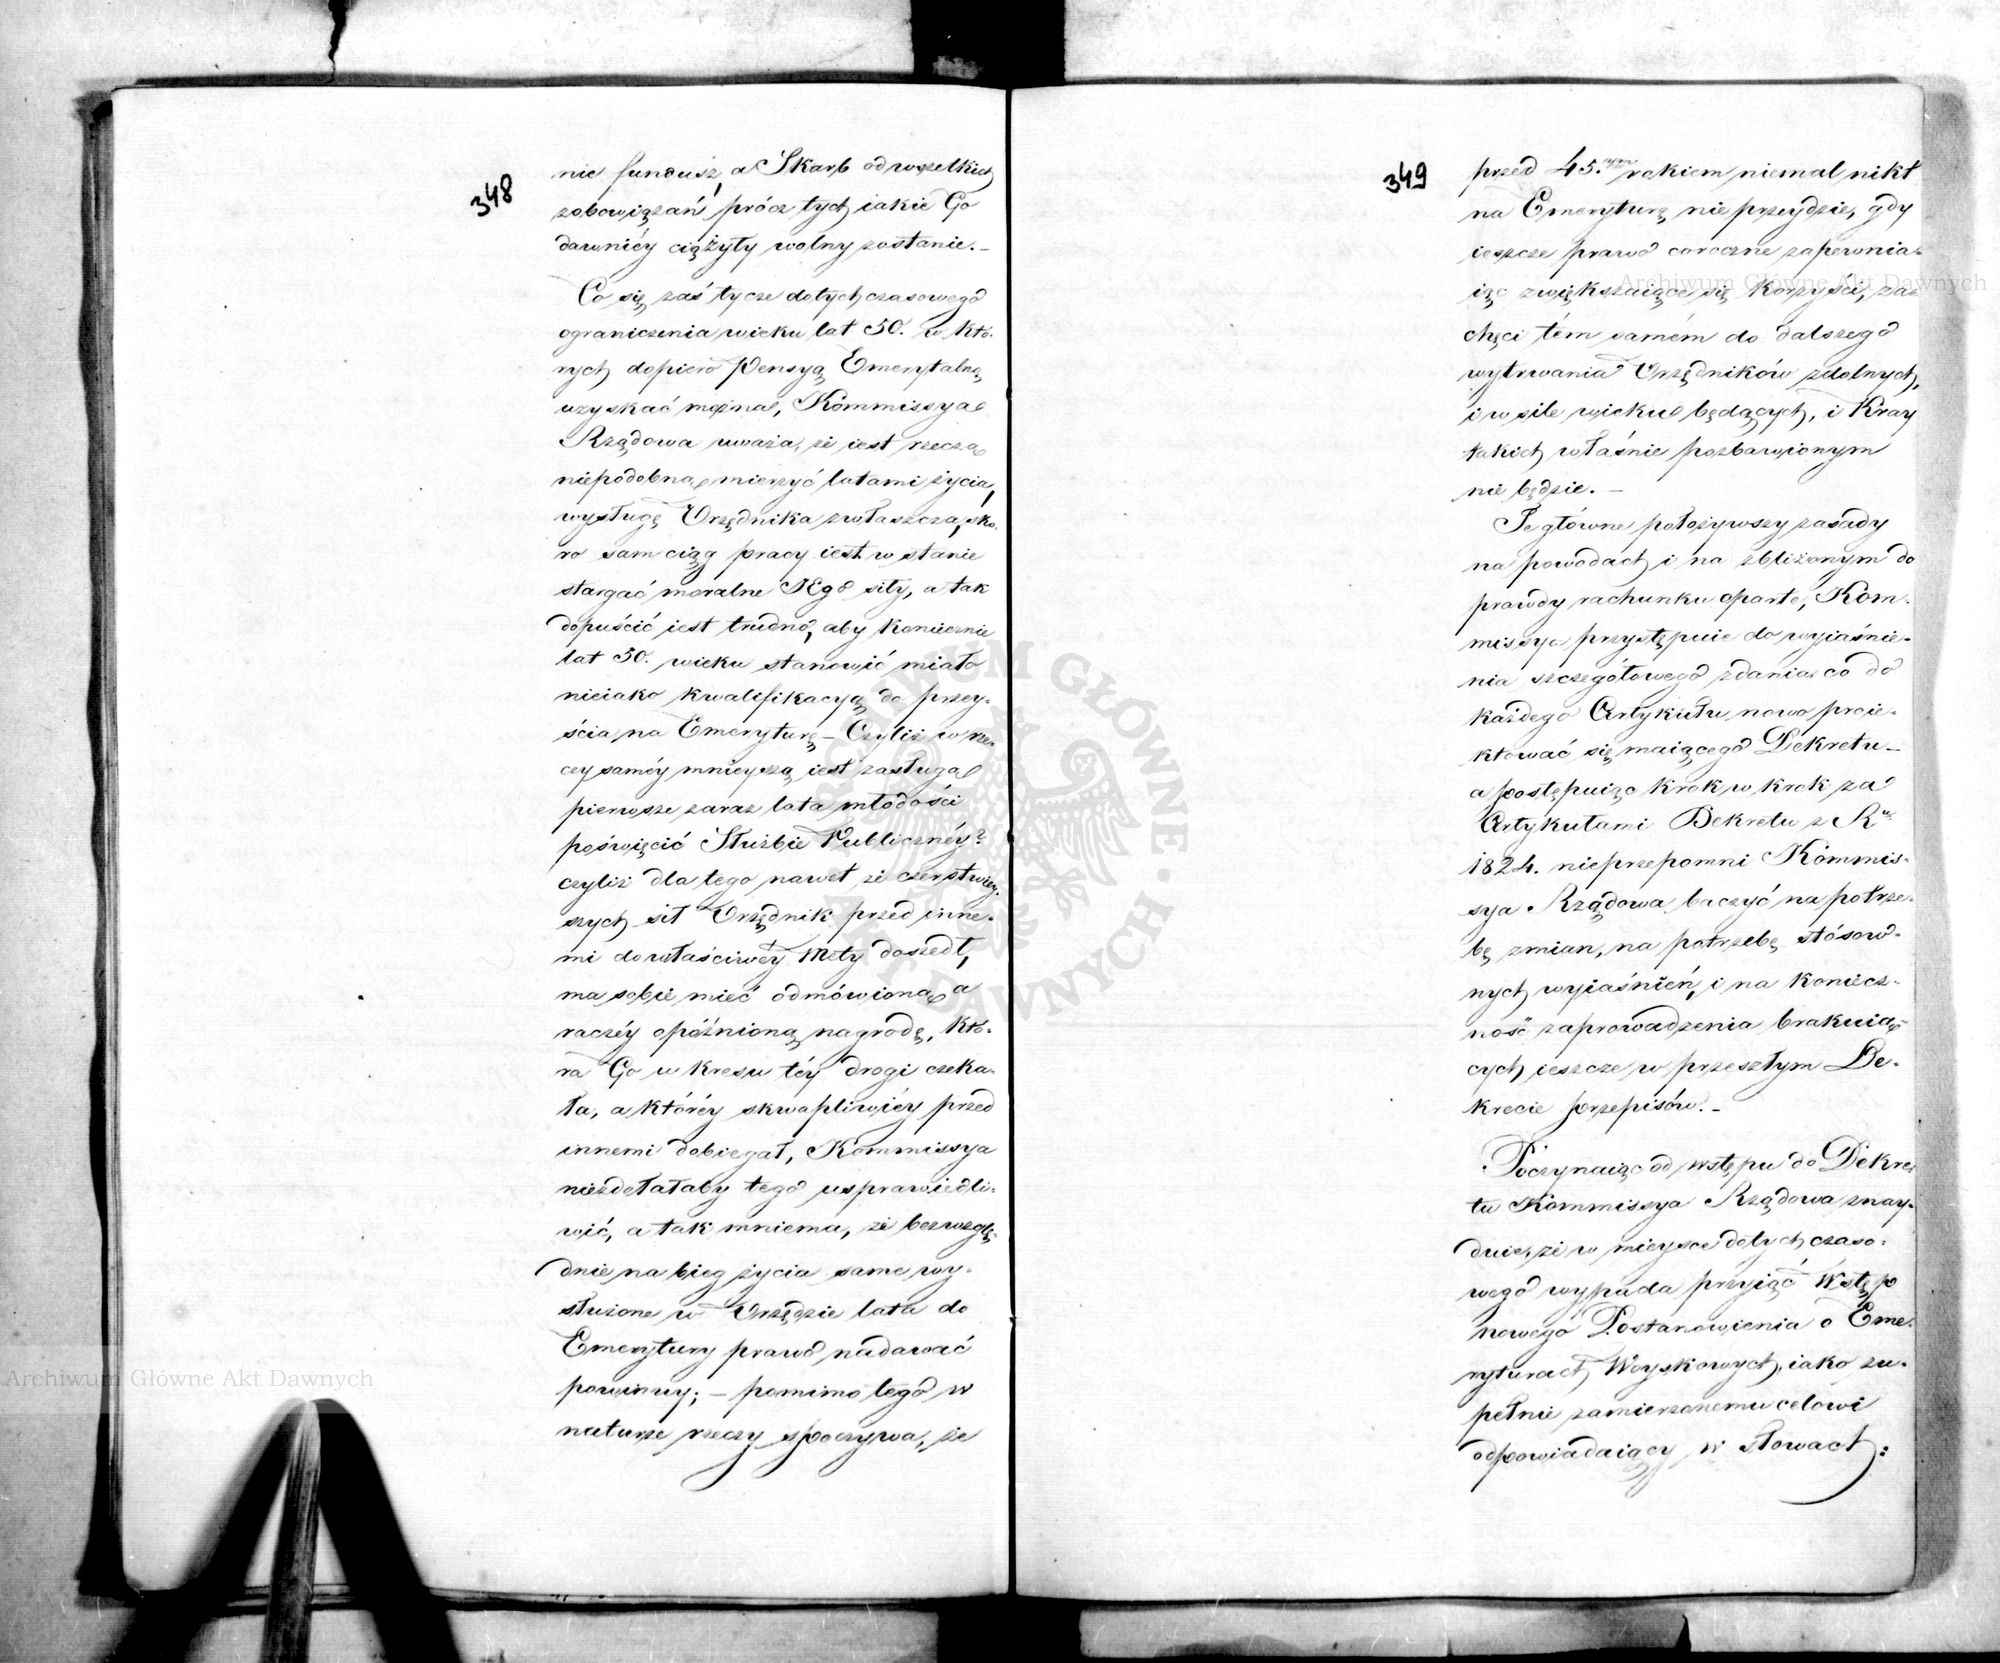 348
nie fundusz, a Skarb od wszelkich
zobowiązań prócz tych iakie Go
dawniéy ciążyły wolny zostanie. –
Co się zaś tycze dotychczasowego
ograniczenia wieku lat 50. w któ-
rych dopiero Pensyą Emerytalną
uzyskać można, Kommissya
Rządowa uważa, że iest rzeczą
niepodobną mierzyć latami życia,
wysługę Urzędnika zwłaszcza, sko-
ro sam ciąg pracy iest w stanie
stargać moralne Jego siły, a tak
dopuścić iest trudno, aby koniecznie
lat 50. wieku stanowić miało
nieiako kwalifikacyą do przey-
ścia na Emeryturę – Czyliż w rze-
czy saméy mnieyszą iest zasługa
pierwsze zaraz lata młodości
poświęcić Służbie Publicznéy?
czyliż dla tego nawet że czerstwiey-
szych sił Urzędnik przed inne-
mi do właściwéy mety doszedł,
ma sobie mieć odmówioną a
raczéy opóźnioną nagrodę, któ-
ra Go u kresu téy drogi czeka-
ła, a któréy skwapliwiéy przed
innemi dobiegał, Kommissya
niezdołałaby tego usprawiedli-
wić, a tak mniema, że bezwzglę-
dnie na bieg życia same wy-
służone w Urzędzie lata do
Emerytury prawo nadawać
powinny; – pomimo tego w
naturze rzeczy spoczywa, że
349
przed 45.tym rokiem niemal nikt
na Emeryturę nie przeydzie, gdy
ieszcze prawo coroczne zapewnia-
iąc zwiększaiące się korzyści, za-
chęci tém samém do dalszego
wytrwania Urzędników zdolnych,
i w sile wieku będących, i Kray
takich właśnie pozbawionym
nie będzie. –
Te główne położywszy zasady
na powodach i na zbliżonym do
prawdy rachunku oparte, Kom-
missya przystępuie do wyiaśnie-
nia szczegółowego zdania co do
każdego Artykułu nowo proie-
ktować się maiącego Dekretu –
a postępuiąc krok w krok za
Artykułami Dekretu z Ru
1824. nieprzepomni Kommis-
sya Rządowa baczyć na potrze-
bę zmian, na potrzebę stósow-
nych wyiaśnień, i na koniecz-
ność zaprowadzenia brakuią-
cych ieszcze w przeszłym De-
krecie przepisów. –
Poczynaiąc od wstępu do Dekre-
tu Kommissya Rządowa znay-
duie, że w mieysce dotychczaso-
wego wypada przyiąć Wstęp
nowego Postanowienia o Eme-
ryturach Woyskowych, iako zu-
pełnie zamierzonemu celowi
odpowiadaiący, w słowach:
Archiwum Główne Akt Dawnych
Archiwum Główne Akt Dawnych
ARCHIWUM GŁÓWNE AKT DAWNYCH